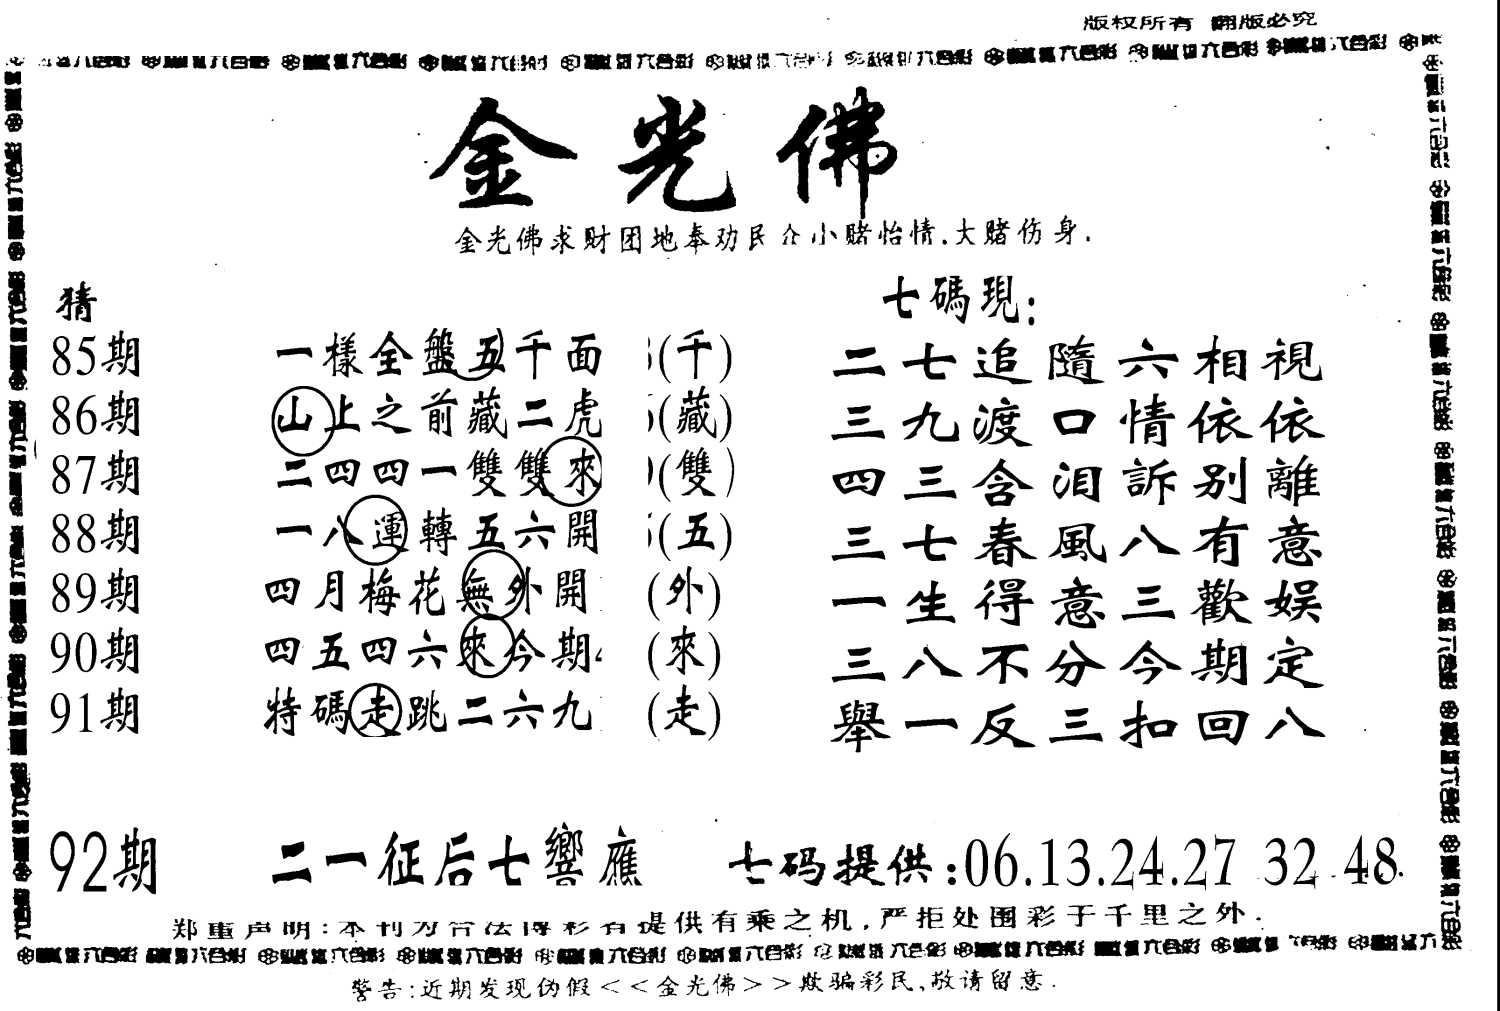 版权所有 翻版必究
金光佛
金光佛求财团地奉劝民众小赌怡情.大赌伤身.
猜
七碼現:
85期 一樣全盤五千面 (千) 二七追隨六相視
86期 山上之前藏二虎 (藏) 三九渡口情依依
87期 二四四一雙雙來 (雙) 四三含泪訴别離
88期 一八運轉五六開 (五) 三七春風八有意
89期 四月梅花無外開 (外) 一生得意三歡娱
90期 四五四六來今期 (來) 三八不分今期定
91期 特碼走跳二六九 (走) 舉一反三扣回八
92期 二一征后七響應 七码提供:06.13.24.27 32 48.
郑重声明:本刊为合法博彩者提供有乘之机,严拒处围彩于千里之外.
警告:近期发现伪假<<金光佛>>欺骗彩民,敬请留意.